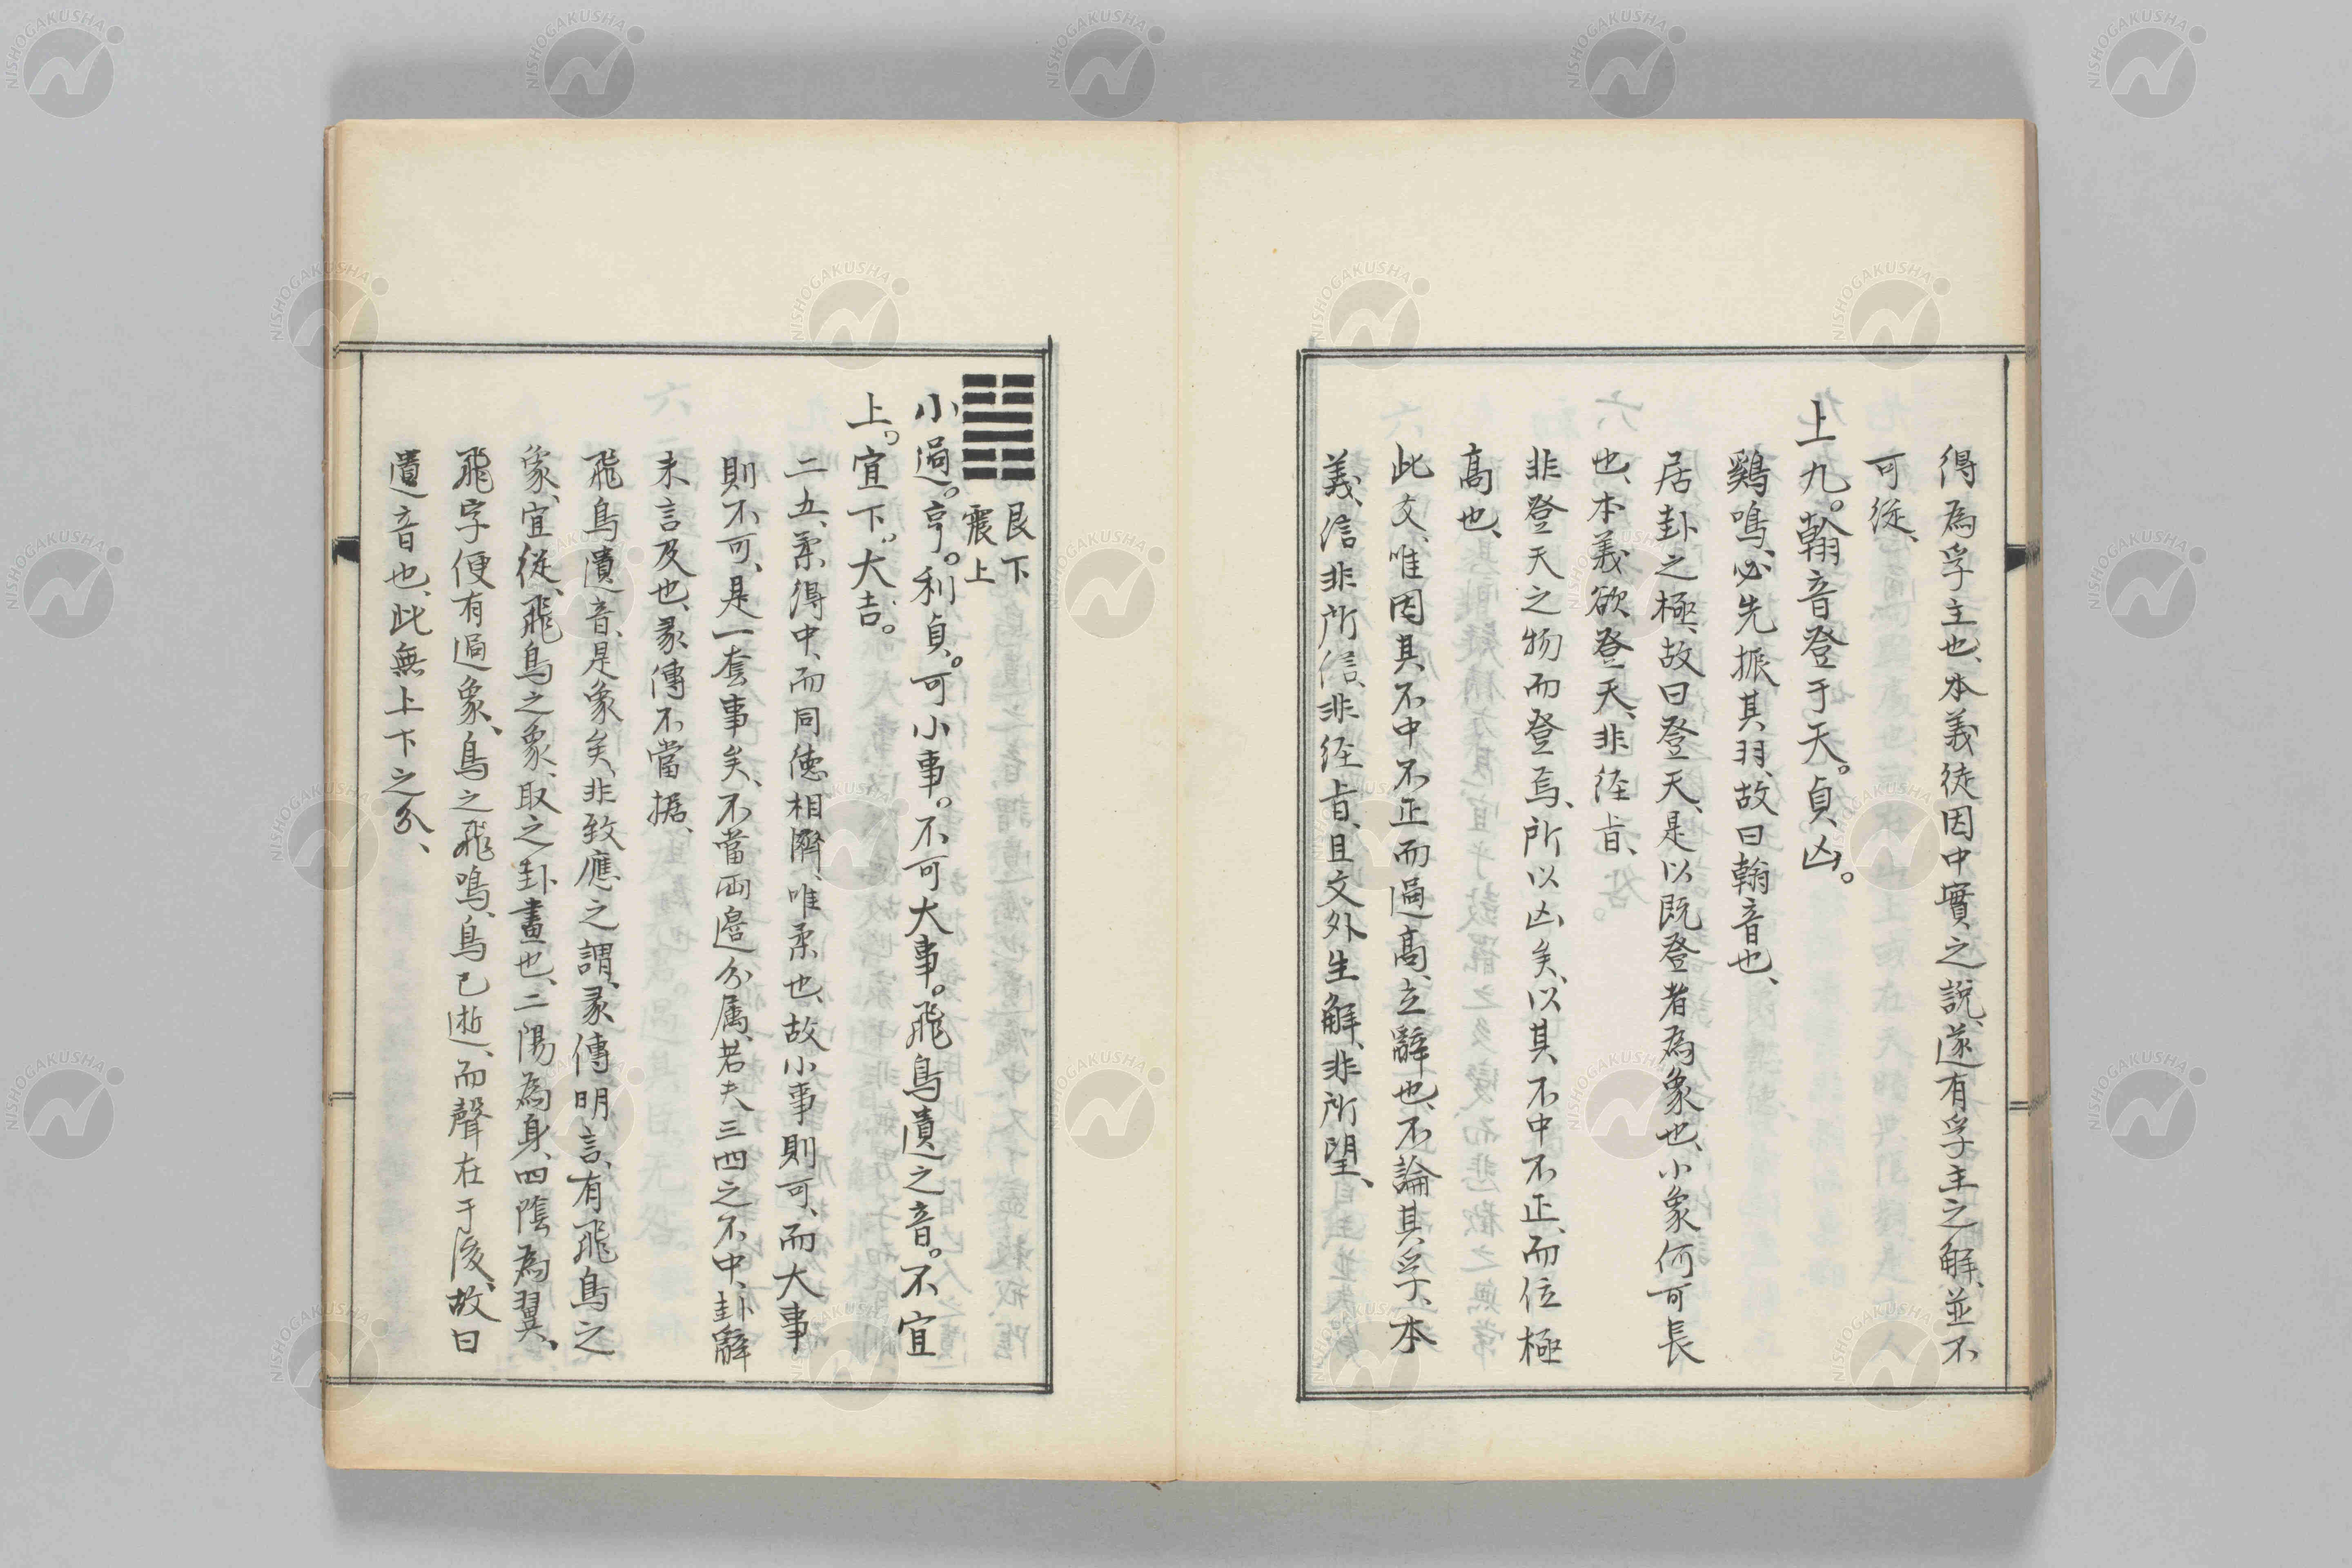 得為孚主也、本義徒因中實之説、遂有孚主之解、並不
可從、
上九。翰音登于天。貞凶。
鷄鳴、必先振其羽、故曰翰音也、
居卦之極、故曰登天、是以既登者為象也、小象何可長
也、本義欲登天、非経旨、
非登天之物而登焉、所以凶矣、以其不中不正、而位極
高也、
此爻、唯因其不中不正而過高、立辭也、不論其孚、本
義、信非所信、非経旨、且文外生解、非所望、
艮下
震上
小過。亨。利貞。可小事。不可大事。飛鳥遺之音。不宜
上。宜下。大吉。
二五、柔得中、而同徳相濟、唯柔也、故小事則可、而大事
則不可、是一套事矣、不當兩邉分属、若夫三四之不中、卦辭
未言及也、彖傳不當据、
飛鳥遺音、是象矣、非致應之謂、彖傳明言、有飛鳥之
象、宜從、飛鳥之象、取之卦畫也、二陽為身、四陰為翼、
飛字便有過象、鳥之飛鳴、鳥已逝、而聲在于後、故曰
遺音也、此無上下之分、
NISHOGAKUSHA